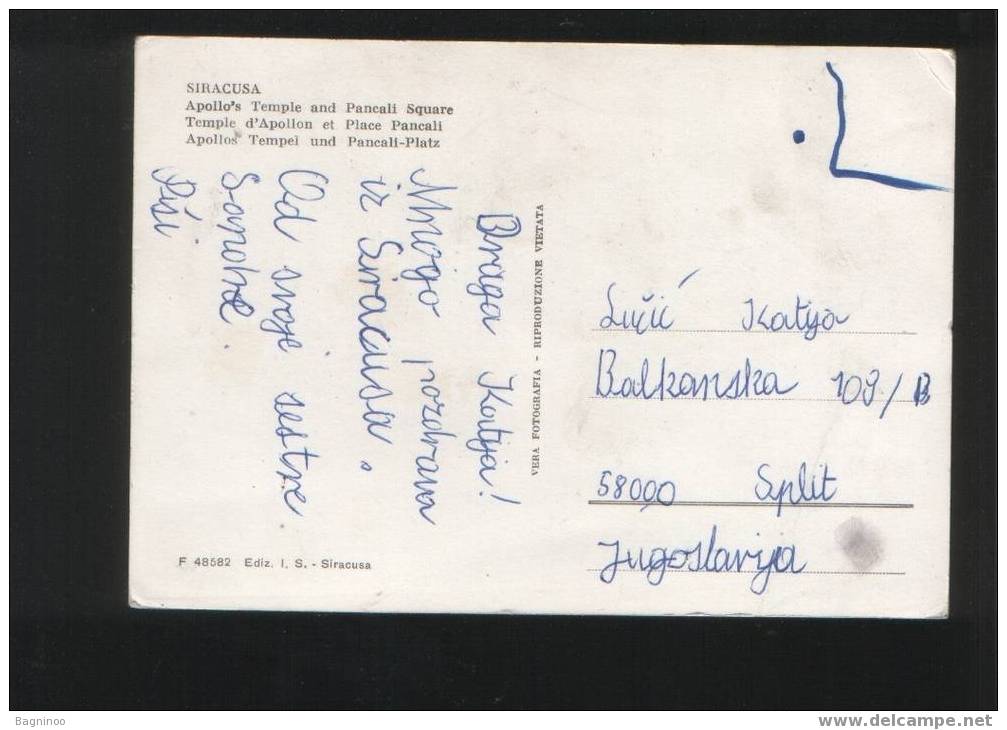 SIRACUSA
Apollo's Temple and Pancali Square
Temple d'Apollon et Place Pancali
Apollos Tempel und Pancali-Platz
Draga Katja!
Mnogo pozdrava
iz Siracusa.
Od svoje sestre
Sandre.
Piši
VERA FOTOGRAFIA - RIPRODUZIONE VIETATA
Lučić Katja
Balkanska 109/B
58000 Split
Jugoslavija
F 48582 Ediz. I. S. - Siracusa
Bagninoo
www.delcampe.net